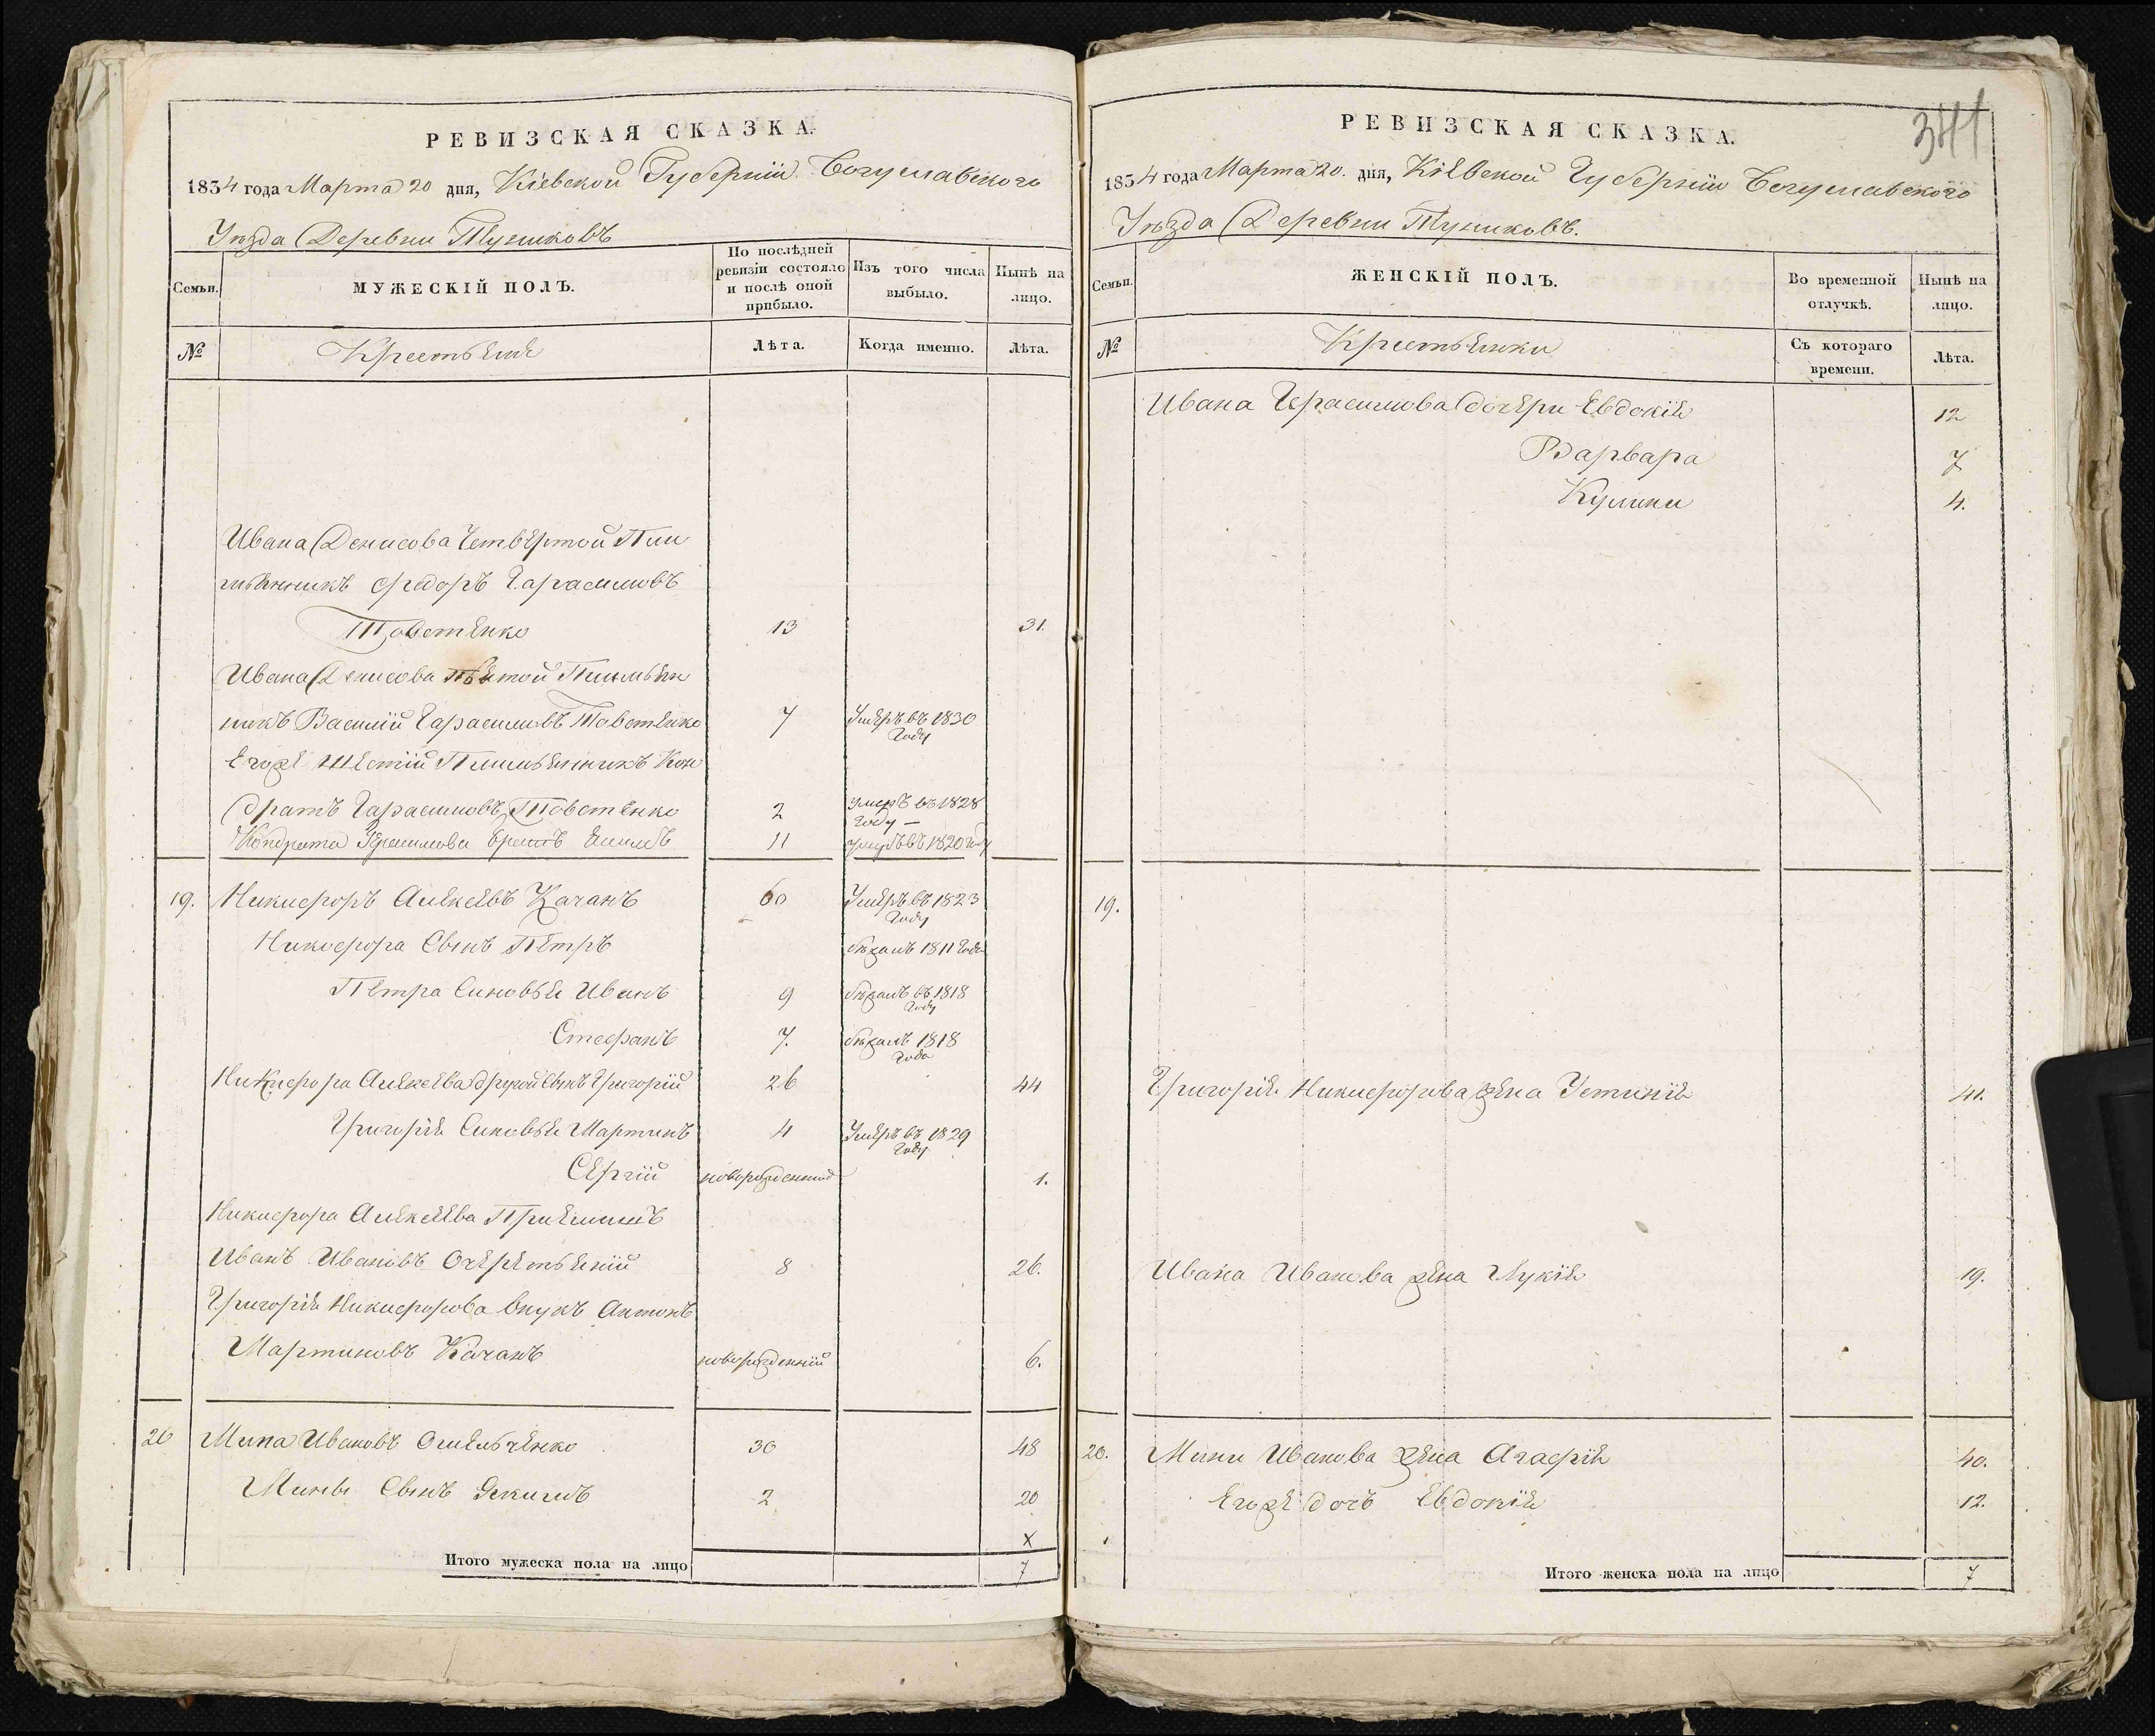 РЕВИЗСКАЯ СКАЗКА.
1834 года Марта 20 дня, Кіевской Губерніи Богуславского
Уѣзда Деревни Тупиковъ
Семьи.
МУЖЕСКІЙ ПОЛЪ.
По послѣдней ревизіи состояло и послѣ оной прибыло.
Изъ того числа выбыло.
Нынѣ на лицо.
№
Крестьяне
Лѣта.
Когда именно.
Лѣта.
Ивана Денисова Четвертой Пле
мьянникъ Федоръ Гарасимовъ
Товстенко 13 31.
Ивана Денисова Пьятой Племьян
никъ Василій Гарасимовъ Товстенко 7 Умеръ въ 1830 Году
Егоже Шестій Племьянникъ Кон
дратъ Гарасимовъ Товстенко 2 умеръ въ 1828 Году —
Кондрата Герасимова братъ 11 умеръ въ 1820 году
19. Никифоръ Алексевъ Качанъ 60 Умеръ въ 1823 Году
Никифора Сынъ Петръ бежалъ 1811 Года
Петра Синовья Иванъ 9 бежалъ въ 1818 Году
Стефанъ 7. бежалъ 1818 Года
Никифора Алексева другой Сынъ Григорій 26 44
Григорія Синовья Мартинъ 4 Умеръ въ 1829 Году
Сергій новорожденний 1.
Никифора Алексеева Приемишъ
Иванъ Ивановъ Очеретьяній 8 26.
Григорія Никифорова внукъ Антонъ
Мартиновъ Качанъ новорожденній 6.
20 Мина Ивановъ Омельченко 30 48
Мины Сынъ Якимъ 2 20
х
Итого мужеска пола на лицо 7
РЕВИЗСКАЯ СКАЗКА.
341
1834 года Марта 20. дня, Кіевской Губерніи Богуславского
Уѣзда Деревни Тупиковъ.
Семьи.
ЖЕНСКІЙ ПОЛЪ.
Во временной отлучкѣ.
Нынѣ на лицо.
№
Крестьянки
Съ котораго времени.
Лѣта.
Ивана Герасимова дочери Евдокія 12
Варвара 7
Кулина 4.
19.
Григорія Никифорова жена Устинія 41.
Ивана Иванова жена Лукія 19.
20. Мины Иванова жена Агафія 40.
Егоже дочь Евдокія 12.
Итого женска пола на лицо 7